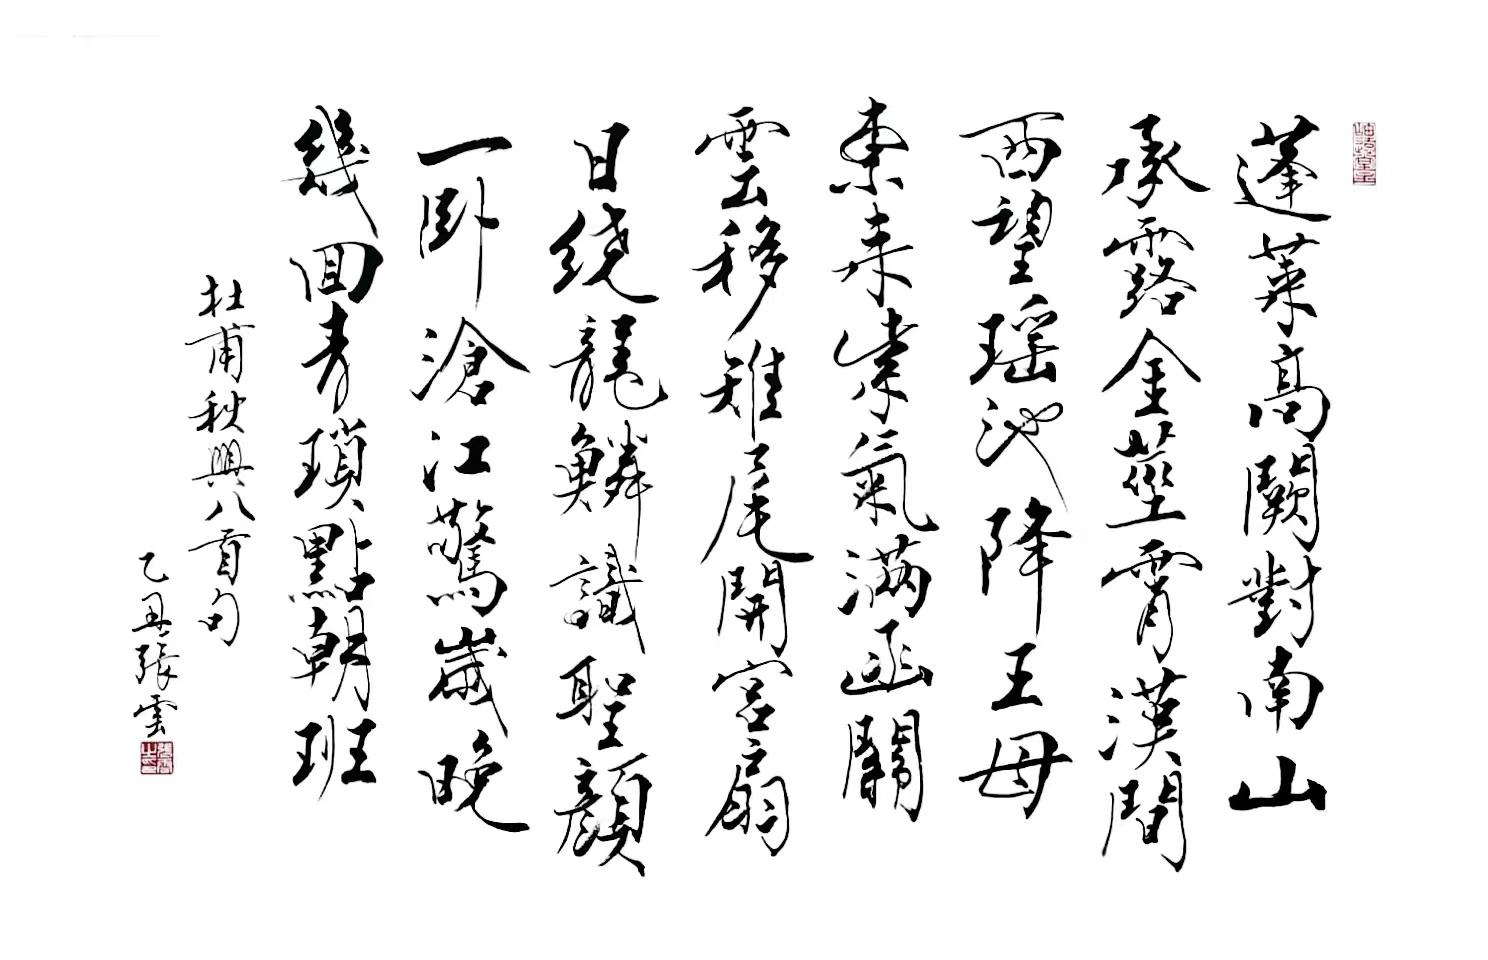 蓬萊高闕對南山
承露金莖霄漢間
西望瑶池降王母
東来紫氣滿函關
雲移雉尾開宮扇
日繞龍鱗識聖顏
一卧滄江驚歲晚
幾回青瑣點朝班
杜甫秋興八首句
乙丑張雲